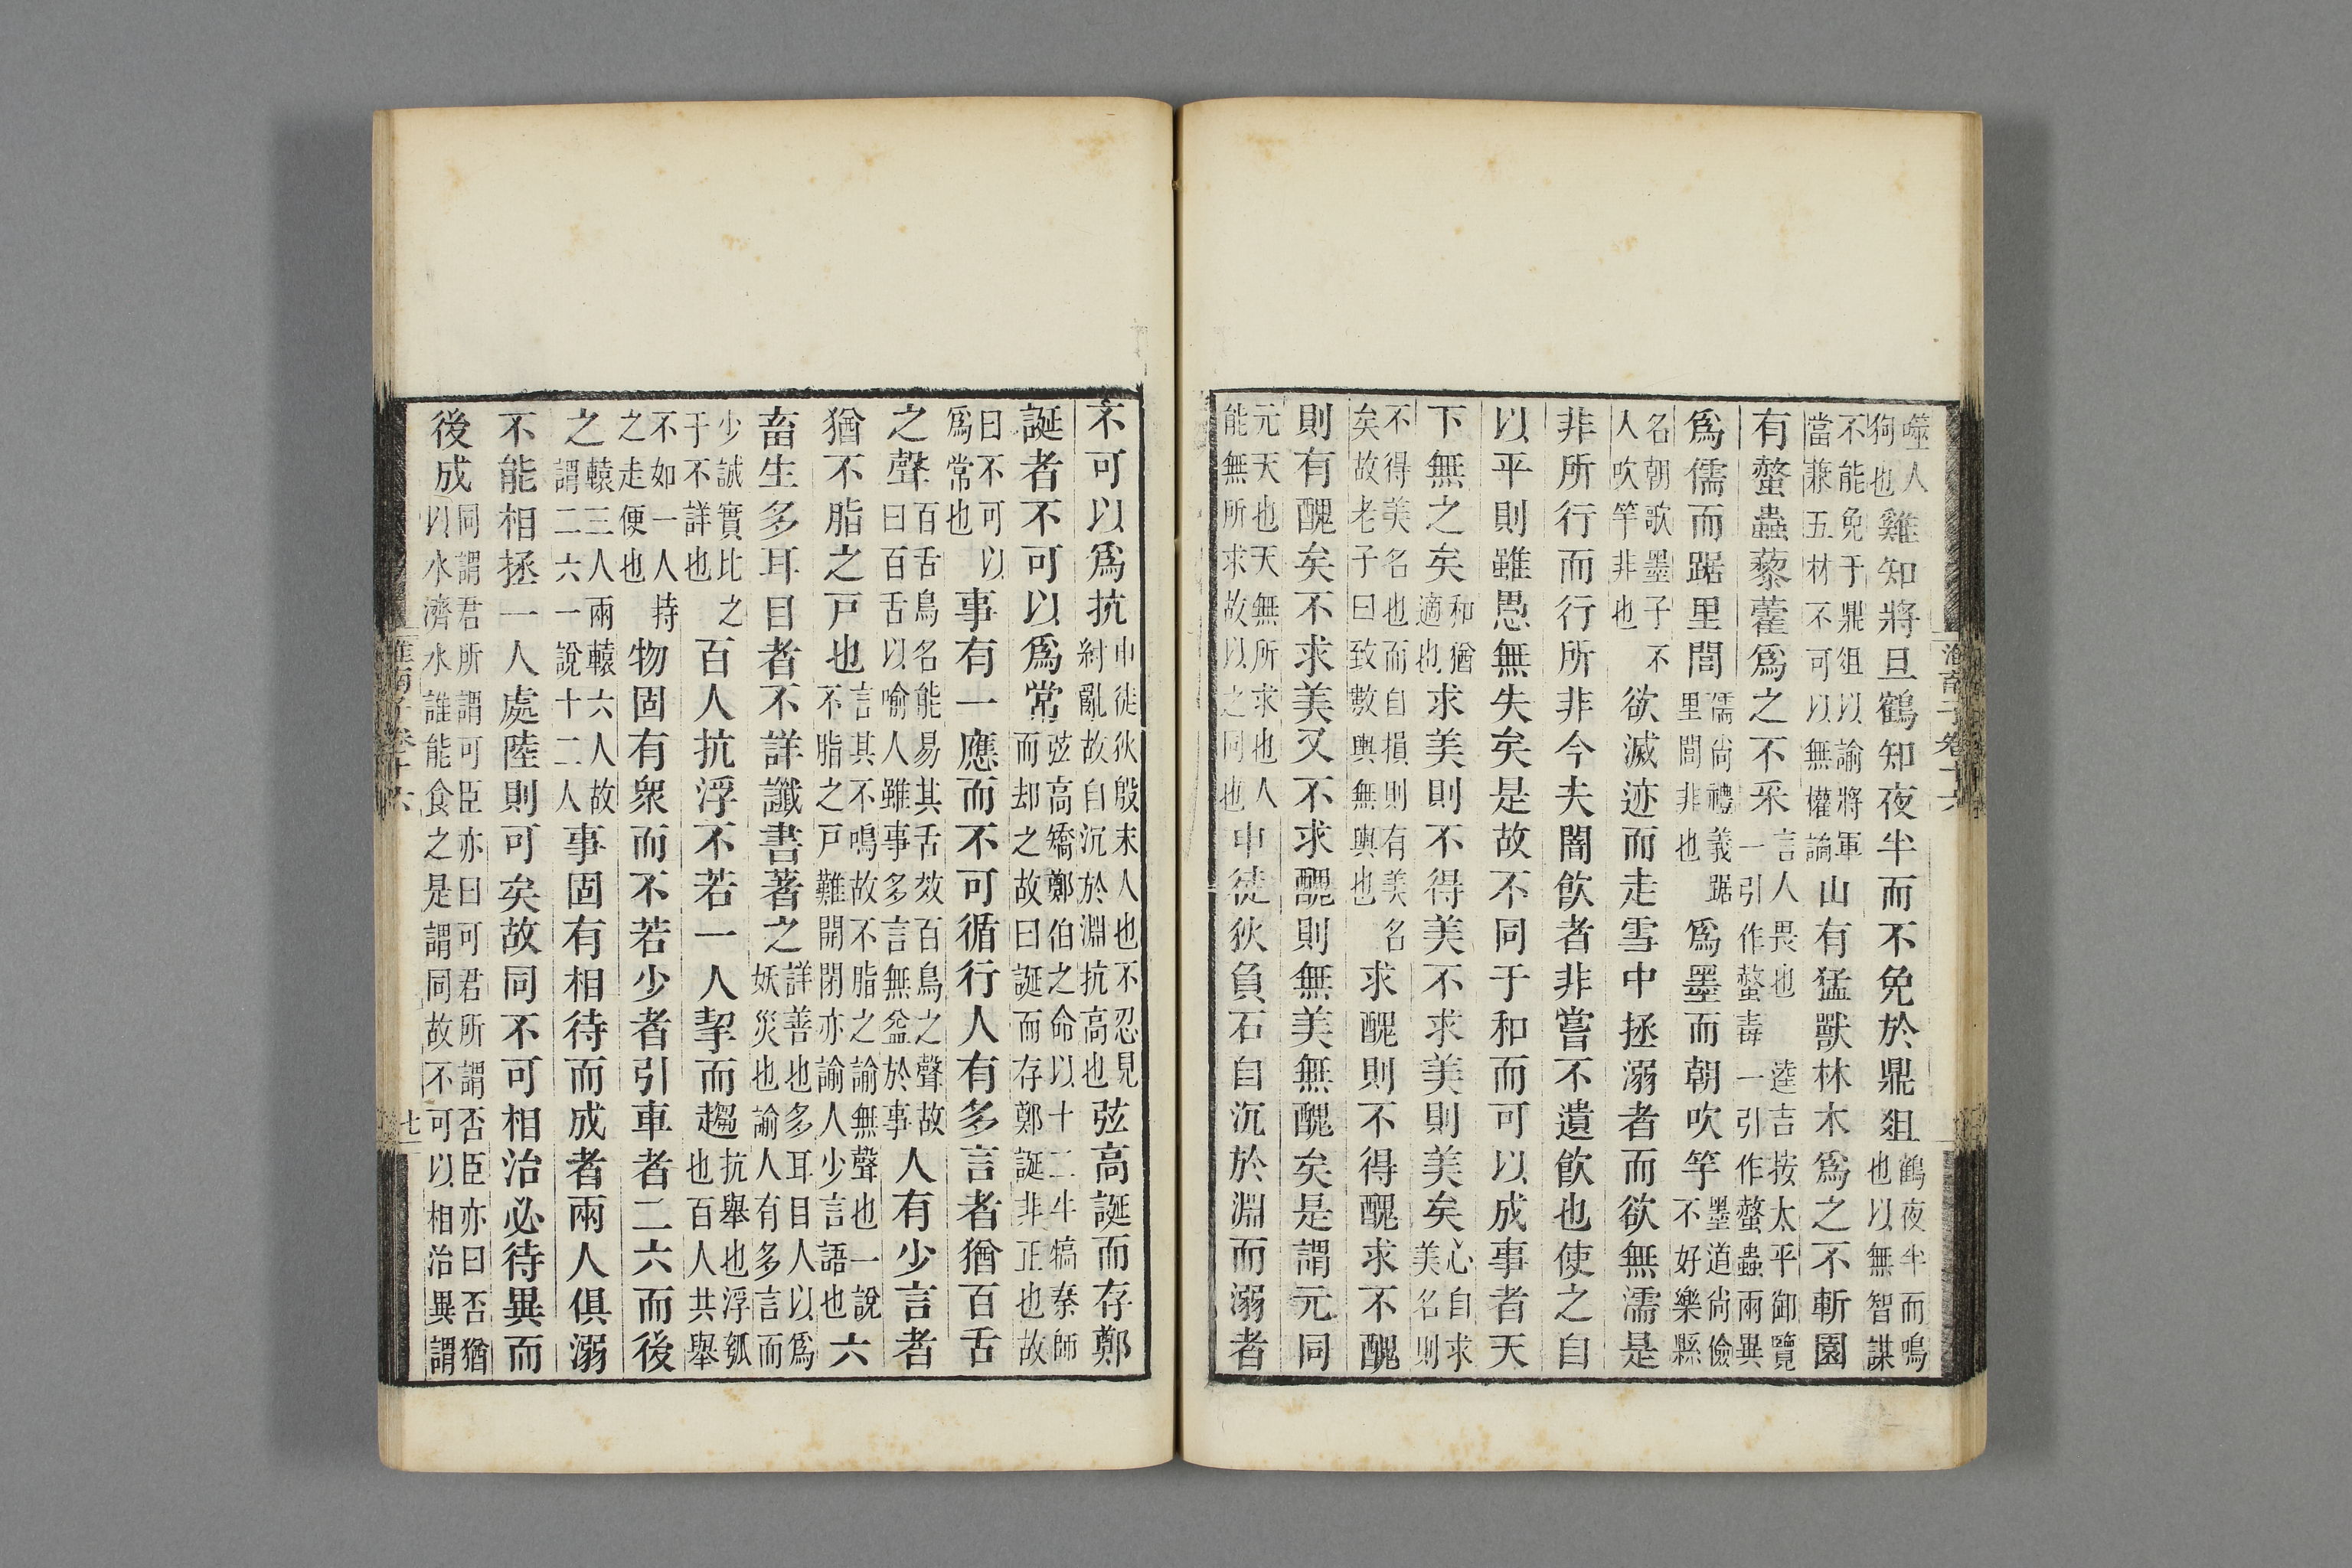 噬人狗也雞知將旦鶴知夜半而不免於鼎俎鶴夜半而鳴也以無智謀
不能免于鼎俎以諭將軍當兼五材不可以無權譎山有猛獸林木爲之不斬園
有螫蟲藜藿爲之不采言人畏也逵吉按太平御覽一引作螫毒一引作螫蟲兩異
爲儒而踞里閭儒尚禮義踞里閭非也爲墨而朝吹竽墨道尚儉不好樂縣
名朝歌墨子不人吹竽非也欲滅迹而走雪中拯溺者而欲無濡是
非所行而行所非今夫闇飮者非嘗不遺飮也使之自
以平則雖愚無失矣是故不同于和而可以成事者天
下無之矣和猶適也求美則不得美不求美則美矣心自求美名則
不得美名也而自損則有美名矣故老子曰致數輿無輿也求醜則不得醜求不醜
則有醜矣不求美又不求醜則無美無醜矣是謂元同
元天也天無所求也人能無所求故以之同也申徒狄負石自沉於淵而溺者
淮南子卷十六
不可以爲抗申徒狄殷末人也不忍見紂亂故自沉於淵抗高也弦高誕而存鄭
誕者不可以爲常弦高矯鄭伯之命以十二牛犒秦師而却之故曰誕而存鄭誕非正也故
曰不可以爲常也事有一應而不可循行人有多言者猶百舌
之聲百舌鳥名能易其舌效百鳥之聲故曰百舌以喻人雖事多言無益於事人有少言者
猶不脂之戸也言其不鳴故不脂之諭無聲也一說不脂之戸難開閉亦諭人少言語也六
畜生多耳目者不詳讖書著之詳善也多耳目人以爲妖災也諭人有多言而
少誠實比之于不詳也百人抗浮不若一人挈而趨抗舉也浮瓠也百人共舉
不如一人持之走便也物固有衆而不若少者引車者二六而後
之轅三人兩轅六人故謂二六一說十二人事固有相待而成者兩人俱溺
不能相拯一人處陸則可矣故同不可相治必待異而
後成同謂君所謂可臣亦曰可君所謂否臣亦曰否猶以水濟水誰能食之是謂同故不可以相治異謂
淮南子卷十六
七